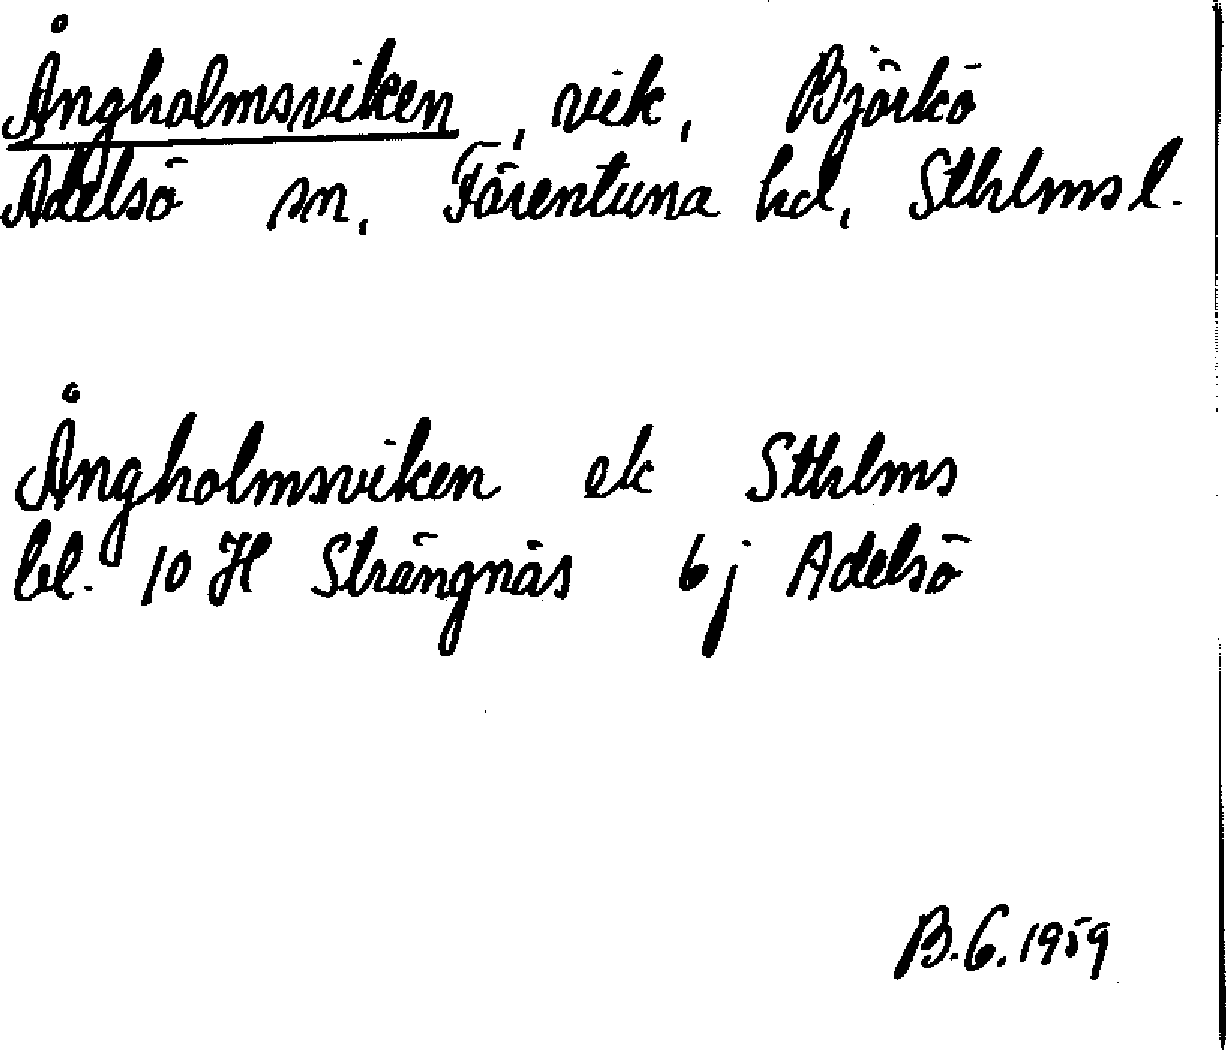 Ångholmsviken, vik, Björkö
Adelsö sn, Färentuna hd, Sthlms l.
Ångholmsviken ek Sthlms
bl. 10 H Strängnäs 6j Adelsö
B.G. 1959